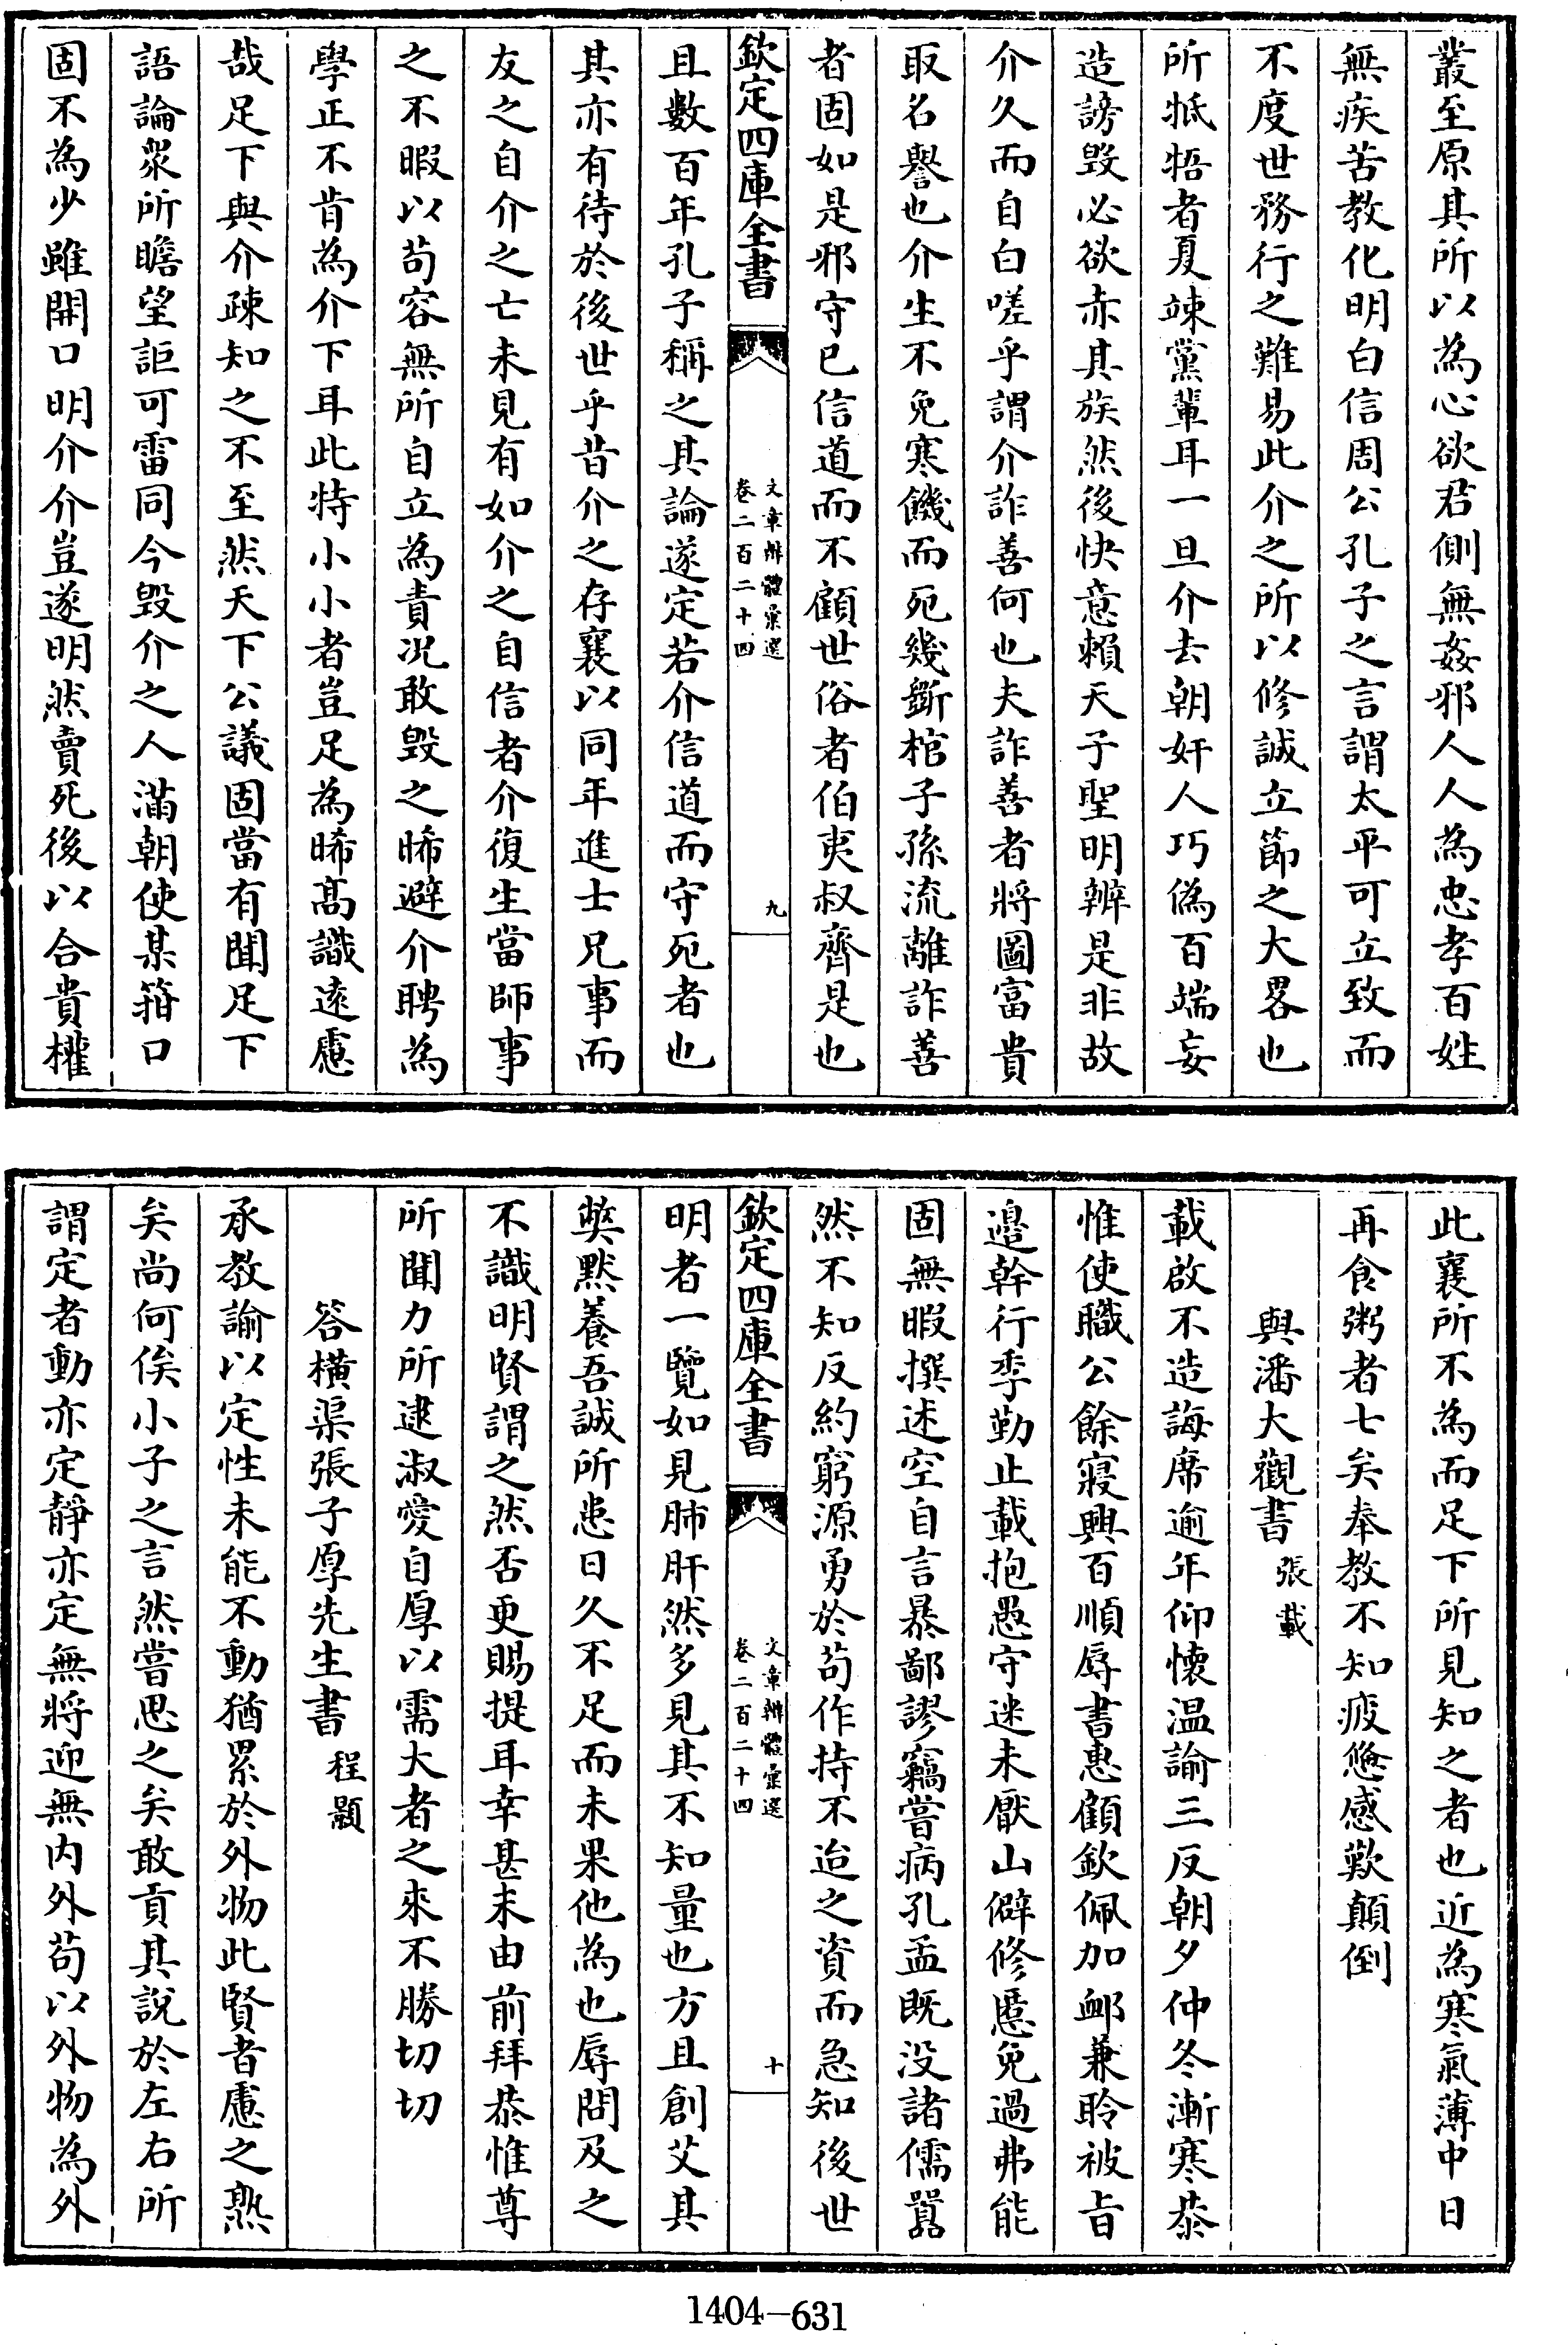 叢至原其所以為心欲君側無姦邪人人為忠孝百姓
無疾苦教化明白信周公孔子之言謂太平可立致而
不度世務行之難易此介之所以修誠立節之大畧也
所牴牾者夏竦黨輩耳一旦介去朝奸人巧偽百端妄
造謗毀必欲赤其族然後快意賴天子聖明辨是非故
介久而自白嗟乎謂介詐善何也夫詐善者將圖富貴
取名譽也介生不免寒餓而死幾斷棺子孫流離詐善
者固如是邪守已信道而不顧世俗者伯夷叔齊是也
欽定四庫全書
文章辨體彙選
卷二百二十四
九
且數百年孔子稱之其論遂定若介信道而守死者也
其亦有待於後世乎昔介之存襄以同年進士兄事而
友之自介之亡未見有如介之自信者介復生當師事
之不暇以苟容無所自立為責况敢毀之晞避介聘為
學正不肯為介下耳此特小小者豈足為晞髙識逺慮
哉足下與介疎知之不至然天下公議固當有聞足下
語論衆所瞻望詎可雷同今毀介之人滿朝使某箝口
固不為少雖開口明介介豈遂明然賣死後以合貴權
此襄所不為而足下所見知之者也近為寒氣薄中日
再食粥者七矣奉教不知疲惫感歎顛倒
與潘大觀書 張載
載啟不造誨席逾年仰懐温諭三反朝夕仲冬漸寒恭
惟使職公餘寢興百順辱書惠顧欽佩加卹兼聆被旨
邉幹行李勤止載抱愚守迷未厭山僻修慝免過弗能
固無暇撰述空自言暴鄙謬竊嘗病孔孟既没諸儒囂
然不知反約窮源勇於苟作持不迨之資而急知後世
欽定四庫全書
文章辨體彙選
卷二百二十四
十
明者一覽如見肺肝然多見其不知量也方且創艾其
獘黙養吾誠所患日久不足而未果他為也辱問及之
不識明賢謂之然否更賜提耳幸甚未由前拜恭惟尊
所聞力所逮淑愛自厚以需大者之來不勝切切
答横渠張子厚先生書 程顥
承教諭以定性未能不動猶累於外物此賢者慮之熟
矣尚何俟小子之言然嘗思之矣敢貢其說於左右所
謂定者動亦定靜亦定無將迎無内外苟以外物為外
1404-631